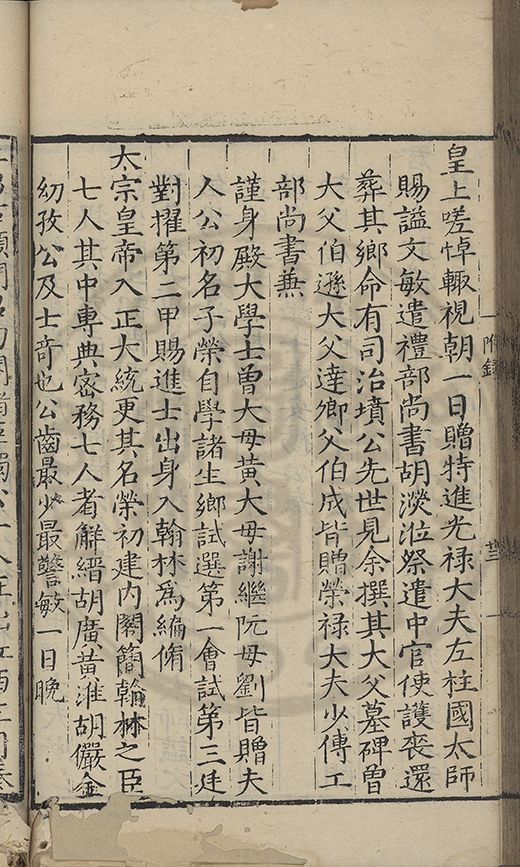 皇上嗟悼輟視朝一日贈特進光禄大夫左柱國太師
賜謚文敏遣禮部尚書胡濙涖祭遣中官使護喪還
葬其鄉命有司治墳公先世見余撰其大父墓碑曾
大父伯遜大父達卿父伯成皆贈榮禄大夫少傅工
部尚書兼
謹身殿大學士曾大母黃大母謝繼阮母劉皆贈夫
人公初名子榮自學諸生鄉試選第一會試第三廷
對擢第二甲賜進士出身入翰林爲編脩
太宗皇帝入正大統更其名榮初建内閣簡翰林之臣
七人其中專典密務七人者觧縉胡廣黃淮胡儼金
幼孜公及士奇也公齒最少最警敏一日晚
附錄